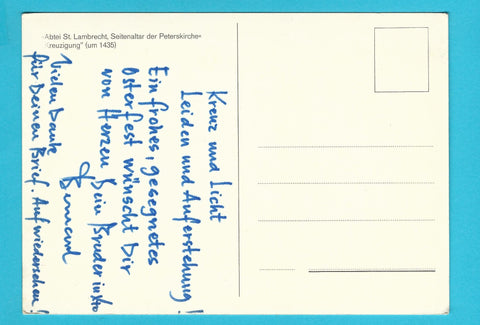 Abtei St. Lambrecht, Seitenaltar der Peterskirche
"Kreuzigung" (um 1435)
Kreuz und Licht
Leiden und Auferstehung!
Ein frohes, gesegnetes
Osterfest wünscht Dir
von Herzen Dein Bruder in Xto
Bernard
Vielen Dank
für Deinen Brief. Auf wiedersehen!